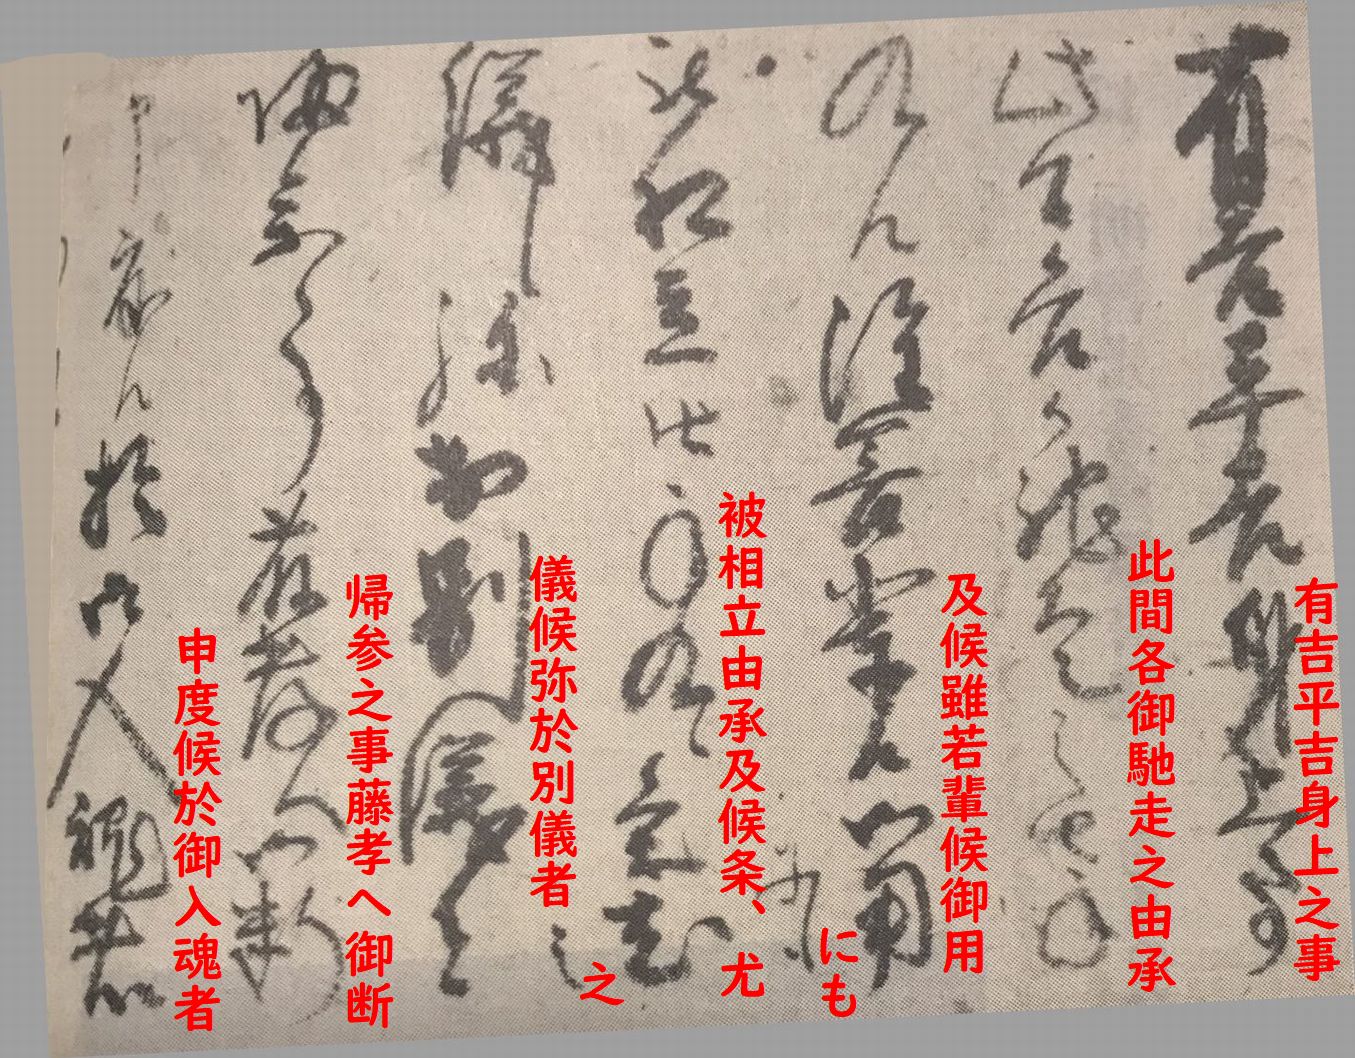 有吉平吉身上之事
此間各御馳走之由承
及候雖若輩候御用
にも
被相立由承及候条、尤
之
儀候弥於別儀者
帰参之事藤孝へ御断
申度候於御入魂者